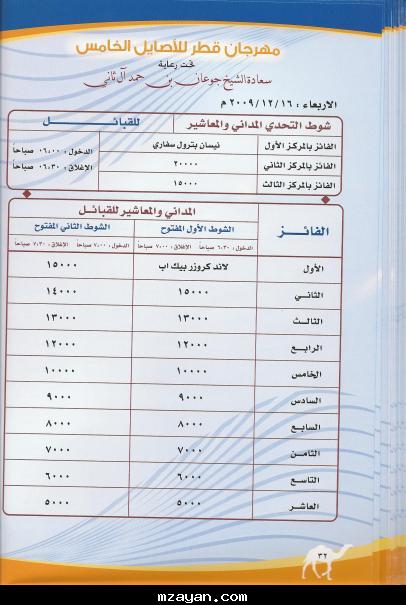 مهرجان قطر للأصايل الخامس
تحت رعاية
سعادة الشيخ جوعان بن حمد آل ثاني
الاربعاء : ٢٠٠٩/١٢/١٦ م
شوط التحدي المداني والمعاشير للقبائل
الفائز بالمركز الأول نيسان بترول سفاري الدخول : ٠٦:٠٠ صباحاً
الفائز بالمركز الثاني ٢٠٠٠٠ الإغلاق : ٠٦:٣٠ صباحاً
الفائز بالمركز الثالث ١٥٠٠٠
الفائز المداني والمعاشير للقبائل
الشوط الأول المفتوح الشوط الثاني المفتوح
الدخول : ٦:٣٠ صباحاً الإغلاق : ٧:٠٠ صباحاً الدخول : ٧:٠٠ صباحاً الإغلاق : ٧:٣٠ صباحاً
الأول لاند كروزر بيك اب ١٥٠٠٠
الثاني ١٥٠٠٠ ١٤٠٠٠
الثالث ١٣٠٠٠ ١٣٠٠٠
الرابع ١٢٠٠٠ ١٢٠٠٠
الخامس ١٠٠٠٠ ١٠٠٠٠
السادس ٩٠٠٠ ٩٠٠٠
السابع ٨٠٠٠ ٨٠٠٠
الثامن ٧٠٠٠ ٧٠٠٠
التاسع ٦٠٠٠ ٦٠٠٠
العاشر ٥٠٠٠ ٥٠٠٠
٣٢
mzayan.com